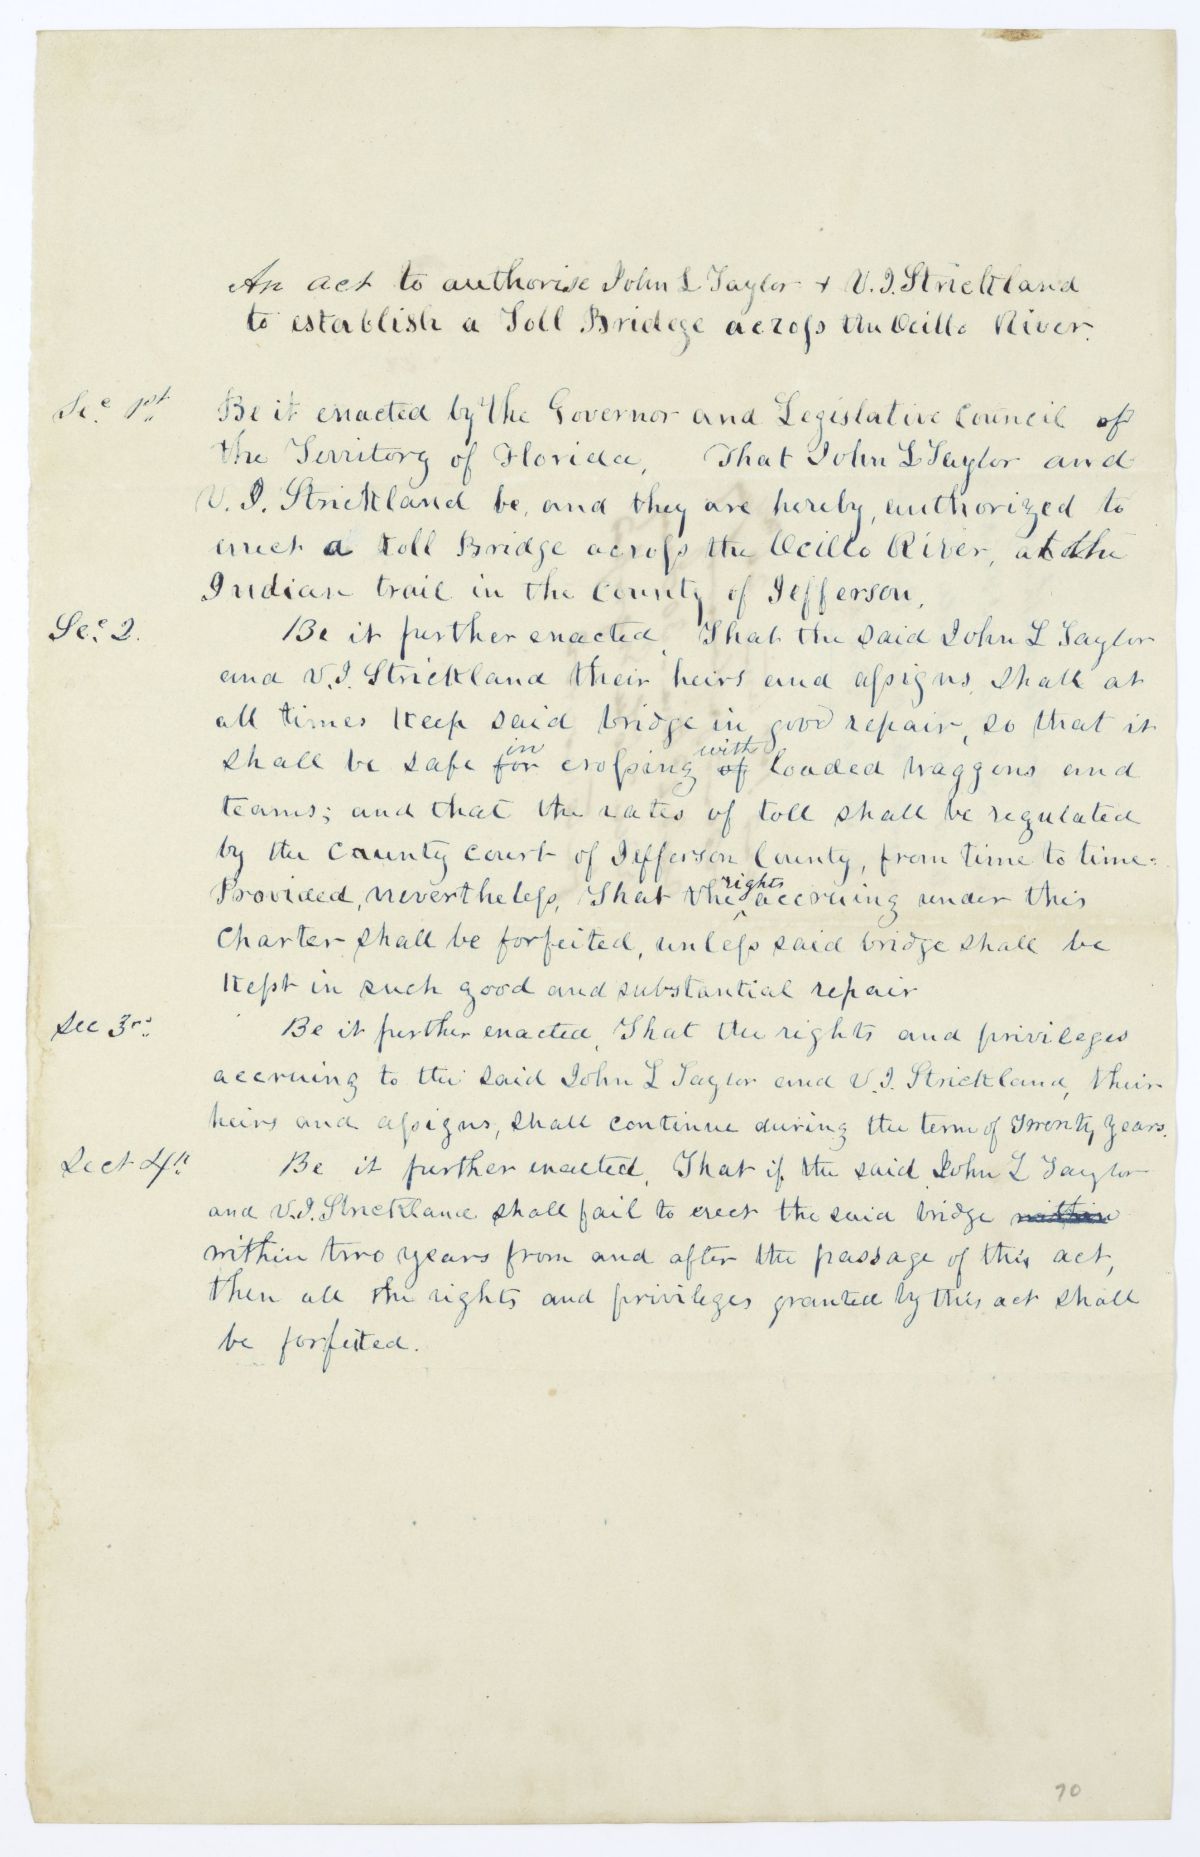 An act to authorise John L Taylor + V. J. Strickland
to establish a Toll Bridege across the Ocillo River.
Sec. 1st. Be it enacted by the Governor and Legislative Council of
the Territory of Florida, That John L Taylor and
V. J. Strickland be, and they are hereby, authorized to
erect a toll Bridge across the Ocillo River, at the
Indian trail in the County of Jefferson,
Sec. 2. Be it further enacted, That the said John L Taylor
and V. J. Strickland their heirs and assigns, shall at
all times keep said bridge in good repair, so that it
shall be safe for in crossing of with loaded waggons and
teams; and that the rates of toll shall be regulated
by the county court of Jefferson County, from time to time:
Provided, nevertheless, That the rights accruing under this
Charter shall be forfeited, unless said bridge shall be
kept in such good and substantial repair
Sec 3rd. Be it further enacted, That the rights and privileges
accruing to the said John L Taylor and V. J. Strickland, their
heirs and assigns, shall continue during the term of Twenty years.
Sect 4th. Be it further enacted, That if the said John L Taylor
and V. J. Strickland shall fail to erect the said bridge within
within two years from and after the passage of this act,
then all the rights and privileges granted by this act shall
be forfeited.
70